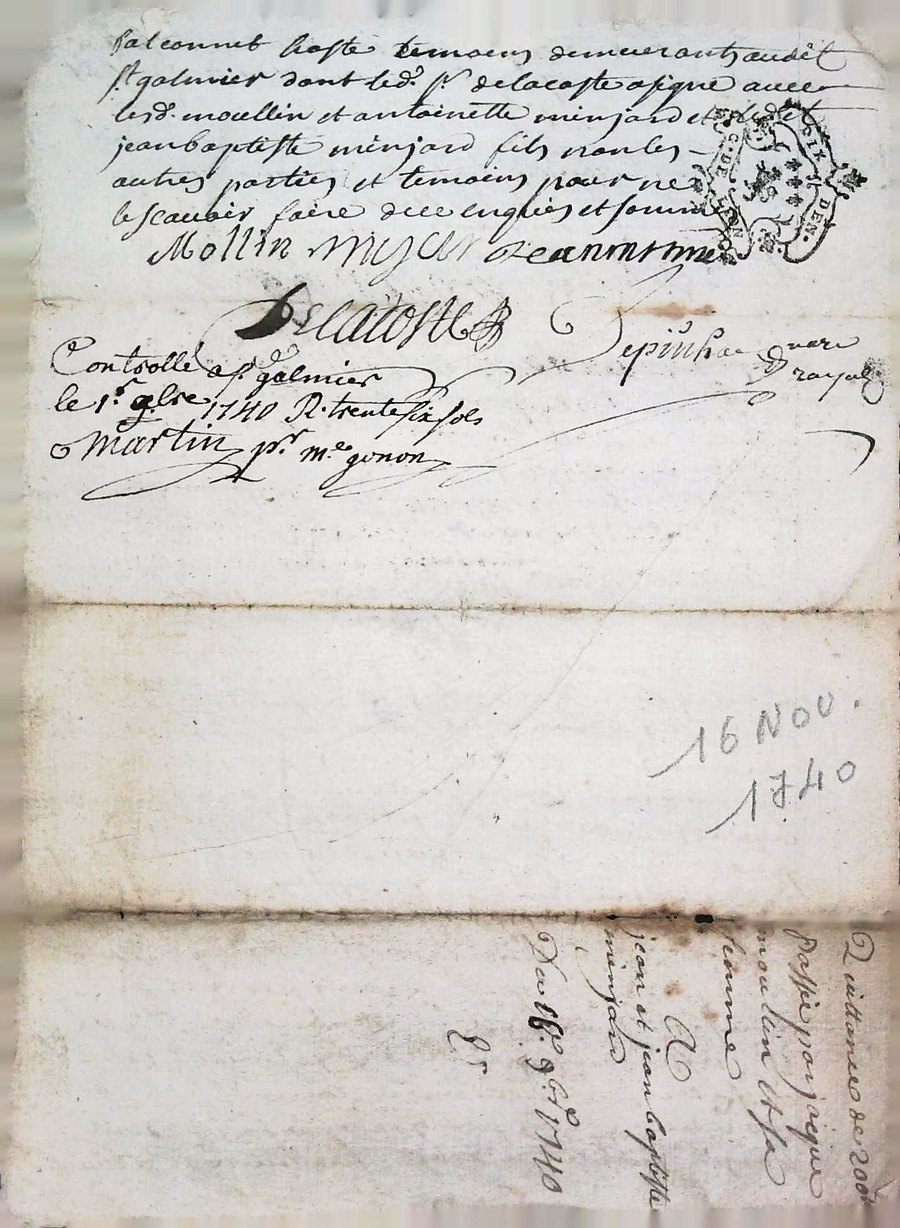 falconnet hoste temoins demeurants audit
st. galmier dont led. sr. delacoste a signé avec
lesd. moullin et antoinette minjard et led.
jean baptiste minjard fils non les
autres parties et temoins pour ne
le scavoir faire de ce enquis et sommé
Mollin
Delacoste
notaire
royal
Controllé a st. galmier
le 1er. 1740 R. trente six sols
martin pr. me gonon
SIX DEN.
G. DE LYON
16 NOV.
1740
Quittance de 200
passée par jaque
moullin et sa
femme
A
jean et jean baptiste
minjard
Du 16e. 9bre 1740